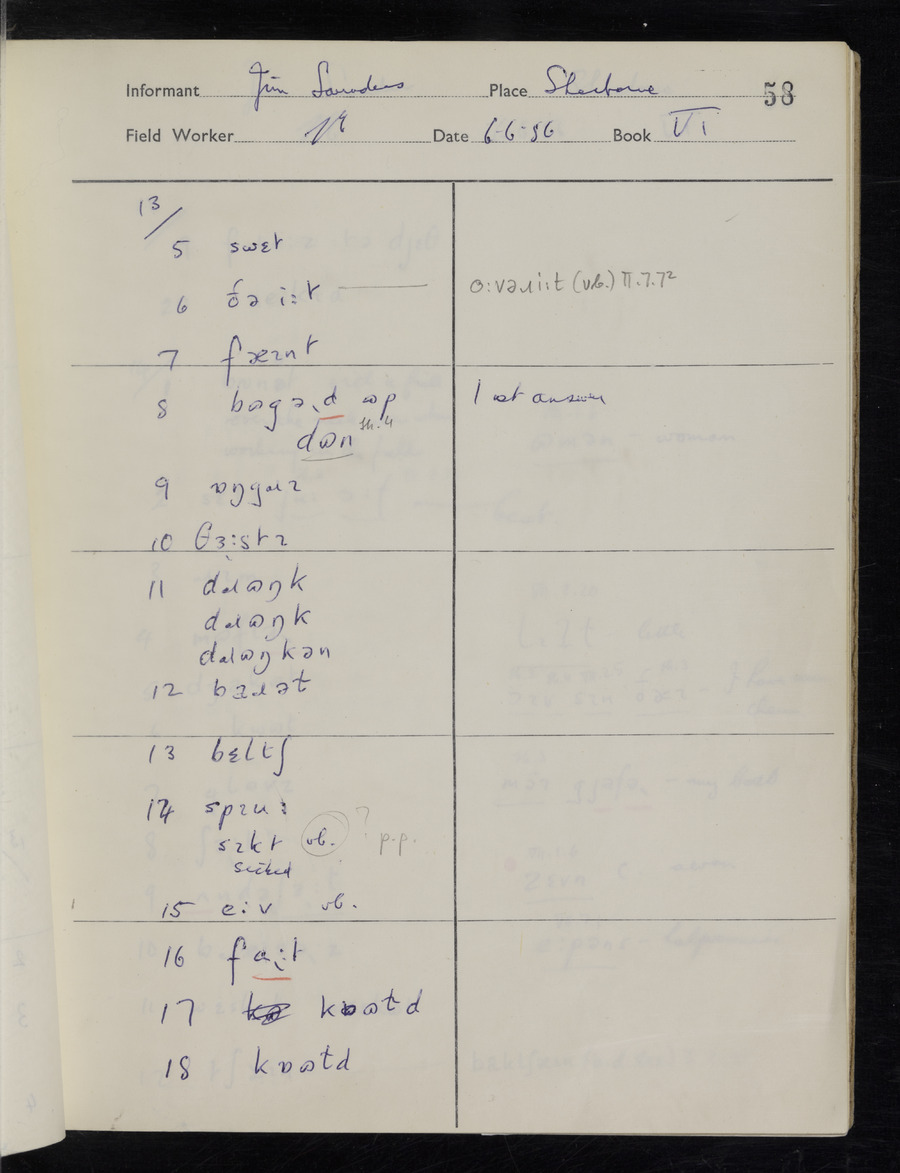 Informant Jim Saunders Place Sherborne 58
Field Worker Date 6-6-56 Book VI
13/
5 swɛt
6 ðə iːt oːvəɹiːt (vb.) VI.7.7²
7 fæɪnt
8 bʊgəɹd ʊp 1st answer
dʊn
9 ʊŋgɹɪ
10 θɜːstɪ
11 dɹʊŋk
dɹʊŋk
dɹʊŋkən
12 bæɹət
13 bɛltʃ
14 spɪuː
sɪkt vb. ? p.p.
sicked
15 eːv vb.
16 faɪːt
17 kɒʊtd
18 kɒʊtd